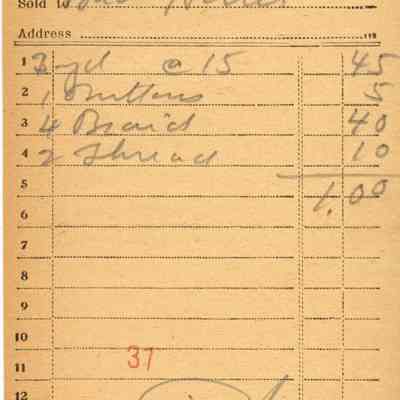 Sold to
Address
1 3 yd @ 15 45
2 1 Buttons 5
3 4 Braid 40
4 2 Thread 10
5 1.00
6
7
8
9
10
31
11
12